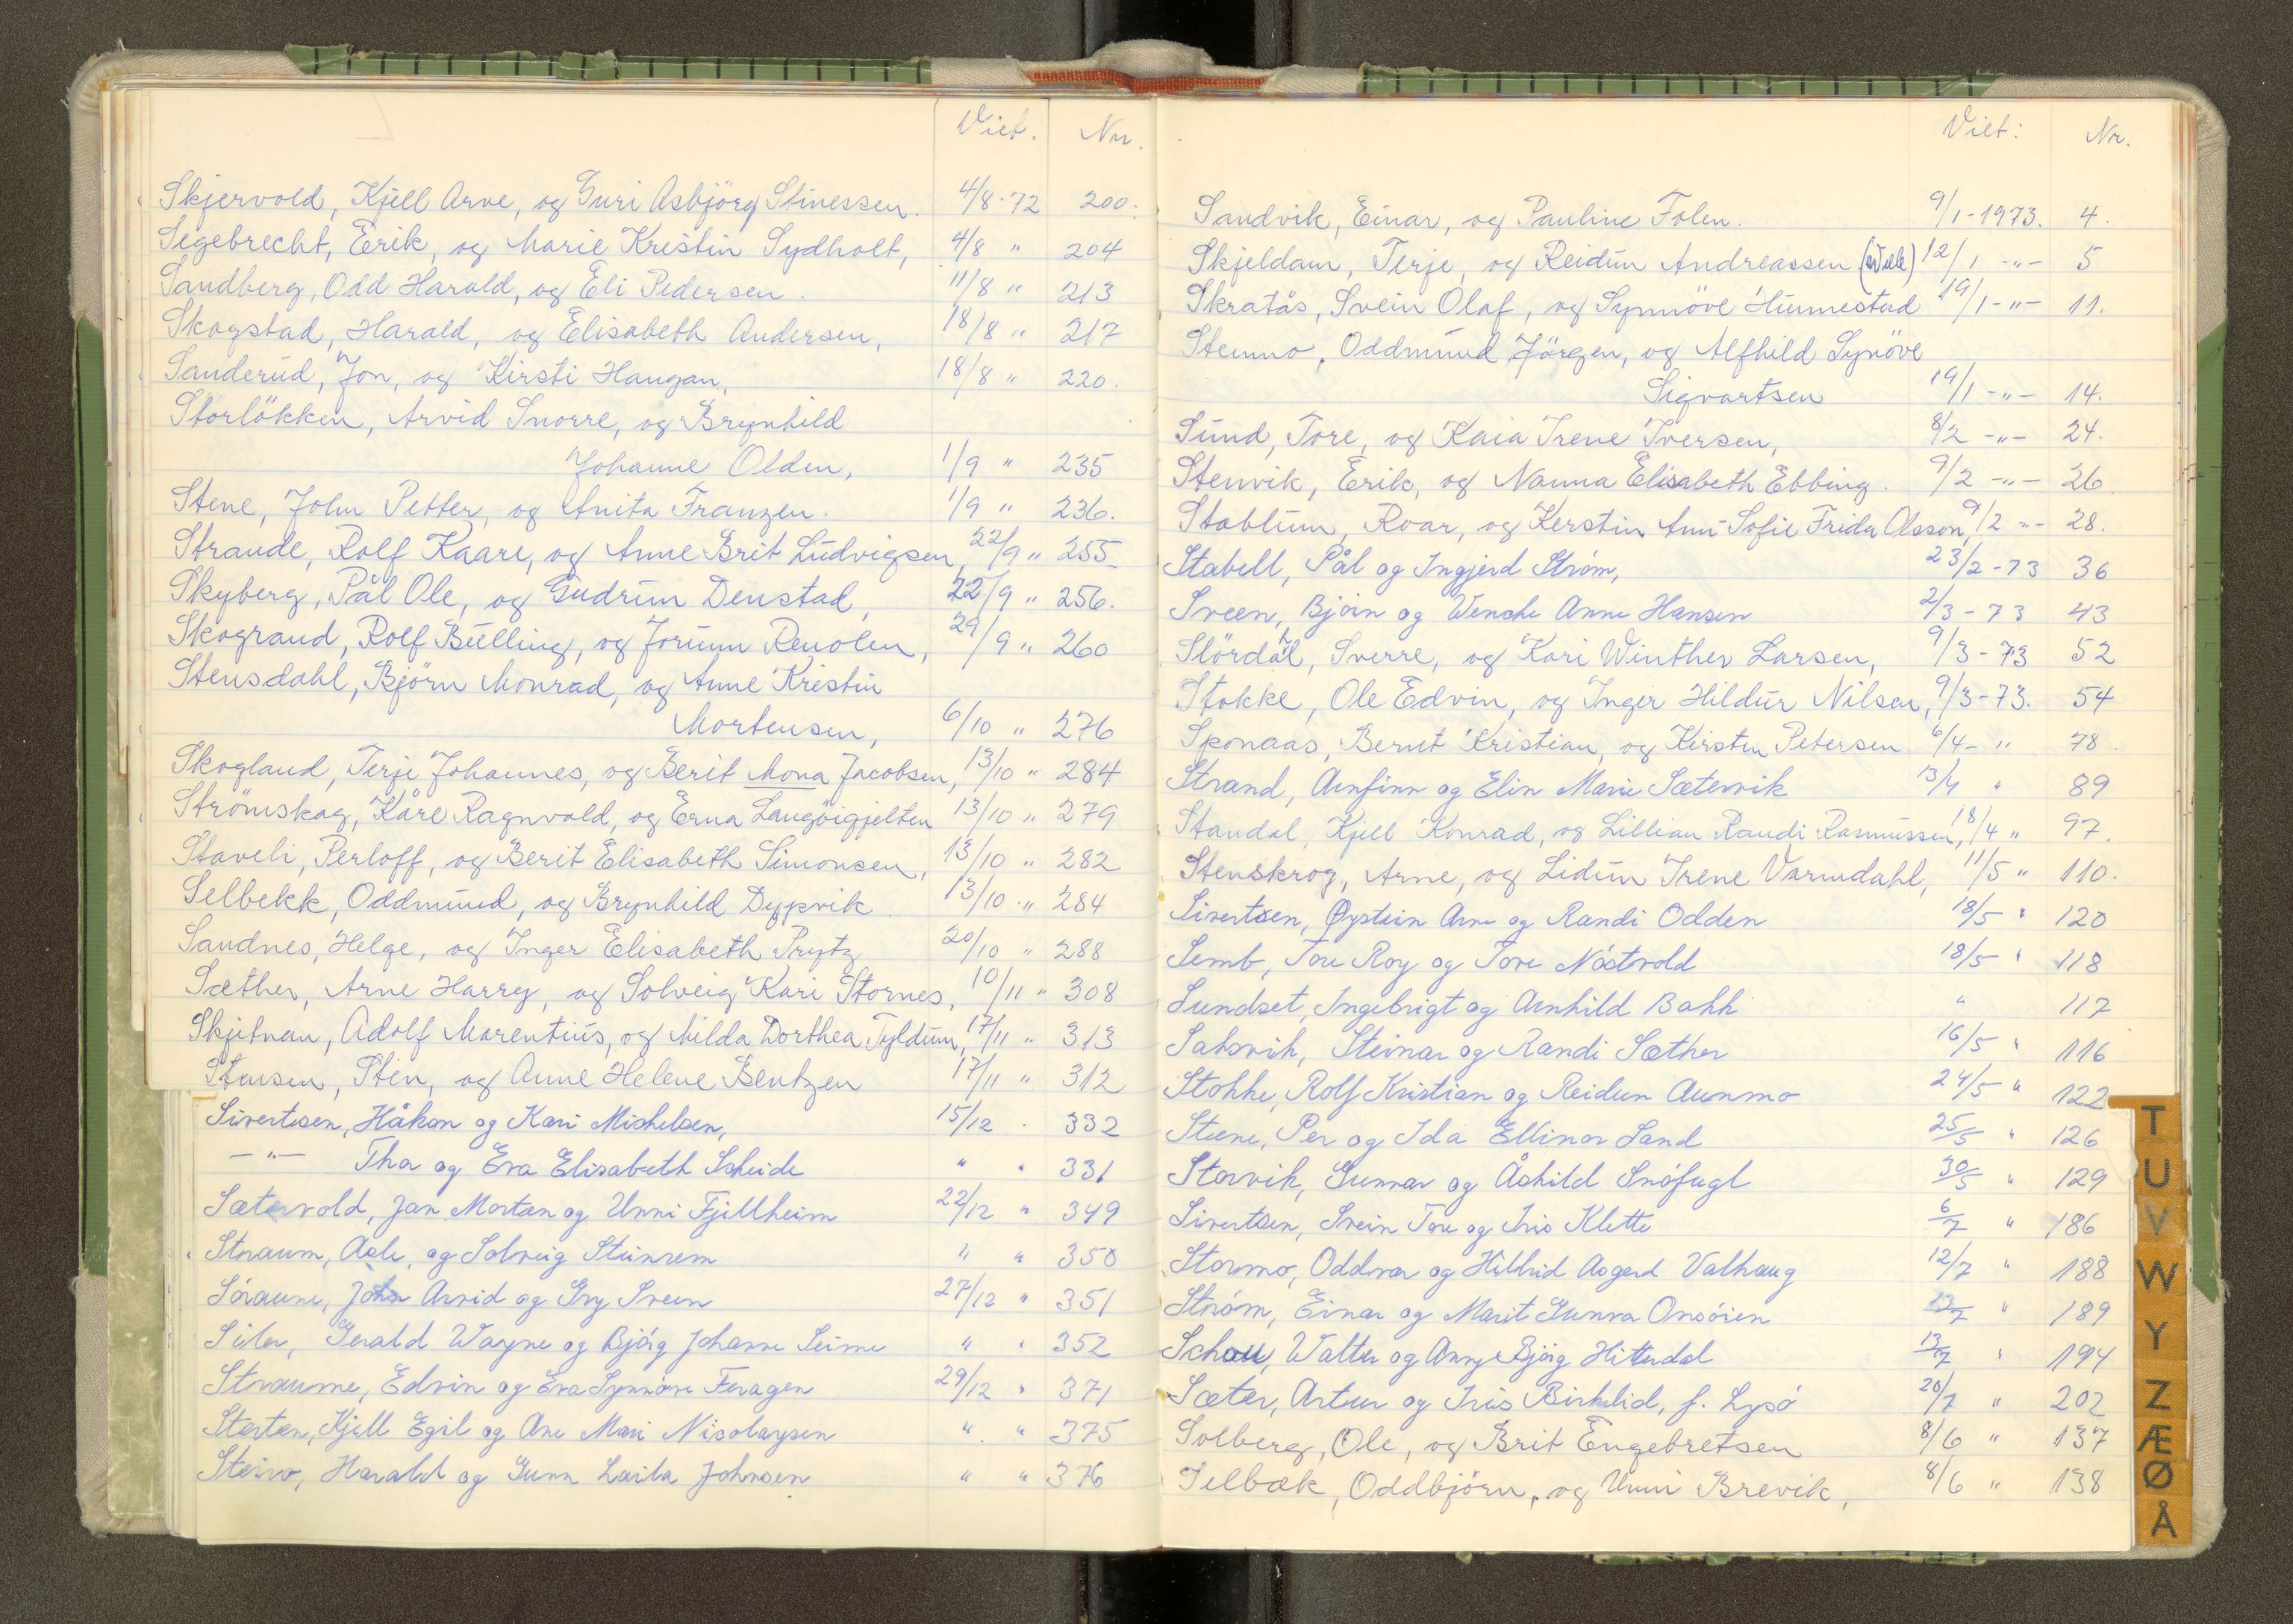 Viet. Nr.
Skjervold, Kjell Arve, og Guri Asbjörg Stinessen. 4/8-72 200.
Segebrecht, Erik, og Marie Kristin Sydholt, 4/8 " 204
Sandberg, Odd Harald, og Eli Pedersen. 11/8 " 213
Skogstad, Harald, og Elisabeth Andersen, 18/8 " 217
Sanderud, Jon, og Kirsti Haugan, 18/8 " 220.
Storlökken, Arvid Snorre, og Brynhild
Johanne Olden, 1/9 " 235
Stene, John Petter, og Anita Franzen. 1/9 " 236.
Strande, Rolf Kaare, og Anne Brit Ludvigsen, 22/9 " 255
Skyberg, Pål Ole, og Gudrun Denstad, 22/9 " 256.
Skogrand, Rolf Bülling, og Jorunn Renolen, 29/9 " 260
Stensdahl, Björn Monrad, og Anne Kristin
Mortensen, 6/10 " 276
Skogland, Terje Johannes, og Berit Mona Jacobsen, 13/10 " 284
Strömskag, Kåre Ragnvald, og Erna Langöigjelten 13/10 " 279
Staveli, Perloff, og Berit Elisabeth Simonsen, 13/10 " 282
Selbekk, Oddmund, og Brynhild Dypvik. 13/10 " 284
Sandnes, Helge, og Inger Elisabeth Prytz 20/10 " 288
Sæther, Arne Harry, og Solveig Kari Stornes, 10/11 " 308
Skjetnan, Adolf Marentius, og Milda Dorthea Tyldum, 17/11 " 313
Stensen, Stein, og Anne Helene Bentzen 17/11 " 312
Sivertsen, Håkon og Kari Mishelsen, 15/12 . 332
-"- Thor og Eva Elisabeth Scheide " " 331
Sætervold, Jan Morten og Unni Fjellheim 22/12 " 349
Straum, Asle, og Solveig Steinrem " " 350
Söraune, John Arvid og Gry Sveen 27/12 " 351
Siler, Gerald Wayne og Bjórg Johanne Seime " " 352
Straume, Edvin og Eva Synnøve Feragen 29/12 " 371
Sterten, Kjell Egil og Ane Mari Nicolaysen " " 375
Steiro, Harald og Gunn Laila Johnsen " " 376
Viet: Nr.
Sandvik, Einar, og Pauline Folen. 9/1-1973. 4.
Skjeldam, Terje, og Reidun Andreassen (Wiik) 12/1 -"- 5
Skratås, Svein Olaf, og Synnöve Hunnestad 19/1 -"- 11.
Stenmo, Oddmund Jörgen, og Alfhild Synöve
Sigvartsen 19/1 -"- 14.
Sund, Tore, og Kaia Irene Iversen, 8/2 -"- 24.
Stenvik, Erik, og Nanna Elisabeth Ebbing. 9/2 -"- 26
Stablum, Roar, og Kerstin Ann-Sofie Frida Olsson, 9/2 -"- 28.
Stabell, Pål og Ingjerd Strøm, 23/2-73 36
Sveen, Bjórn og Wenche Anne Hansen 2/3-73 43
Stördahl, Sverre, og Kari Winther Larsen, 9/3-73 52
Stokke, Ole Edvin, og Inger Hildur Nilsen, 9/3-73. 54
Sponaas, Bernt Kristian, og Kirsten Petersen. 6/4- " 78.
Strand, Arnfinn og Elin Marie Sætervik 13/4 " 89
Standal, Kjell Konrad, og Lillian Randi Rasmussen, 18/4 " 97.
Stenskrog, Arne, og Lidun Irene Varmdahl, 11/5 " 110.
Sivertsen, Øystein Arne og Randi Odden 18/5 " 120
Semb, Tore Roy og Tove Nóstvold 18/5 " 118
Sundset, Ingebrigt og Arnhild Bakk " 117
Saksvik, Steinar og Randi Sæther 16/5 " 116
Stokke, Rolf Kristian og Reidun Aunmo 24/5 " 122
Stene, Per og Ida Ellinor Sand 25/5 " 126
Storvik, Gunnar og Åshild Snófugl 30/5 " 129
Sivertsen, Svein Tore og Iris Klette 6/7 " 186
Stormo, Oddvar og Hillrid Asgerd Valhaug 12/7 " 188
Strøm, Einar og Marit Gunva Onsóien 13/7 " 189
Schau, Walter og Anny Bjórg Hitterdal 13/7 " 194
Sæter, Artur og Iris Birkelid, f. Lysó 20/7 " 202
Solberg, Ole, og Brit Engebretsen 8/6 " 137
Selbæk, Oddbjörn, og Unni Brevik, 8/6 " 138
T
U
V
W
Y
Z
Æ
Ø
Å